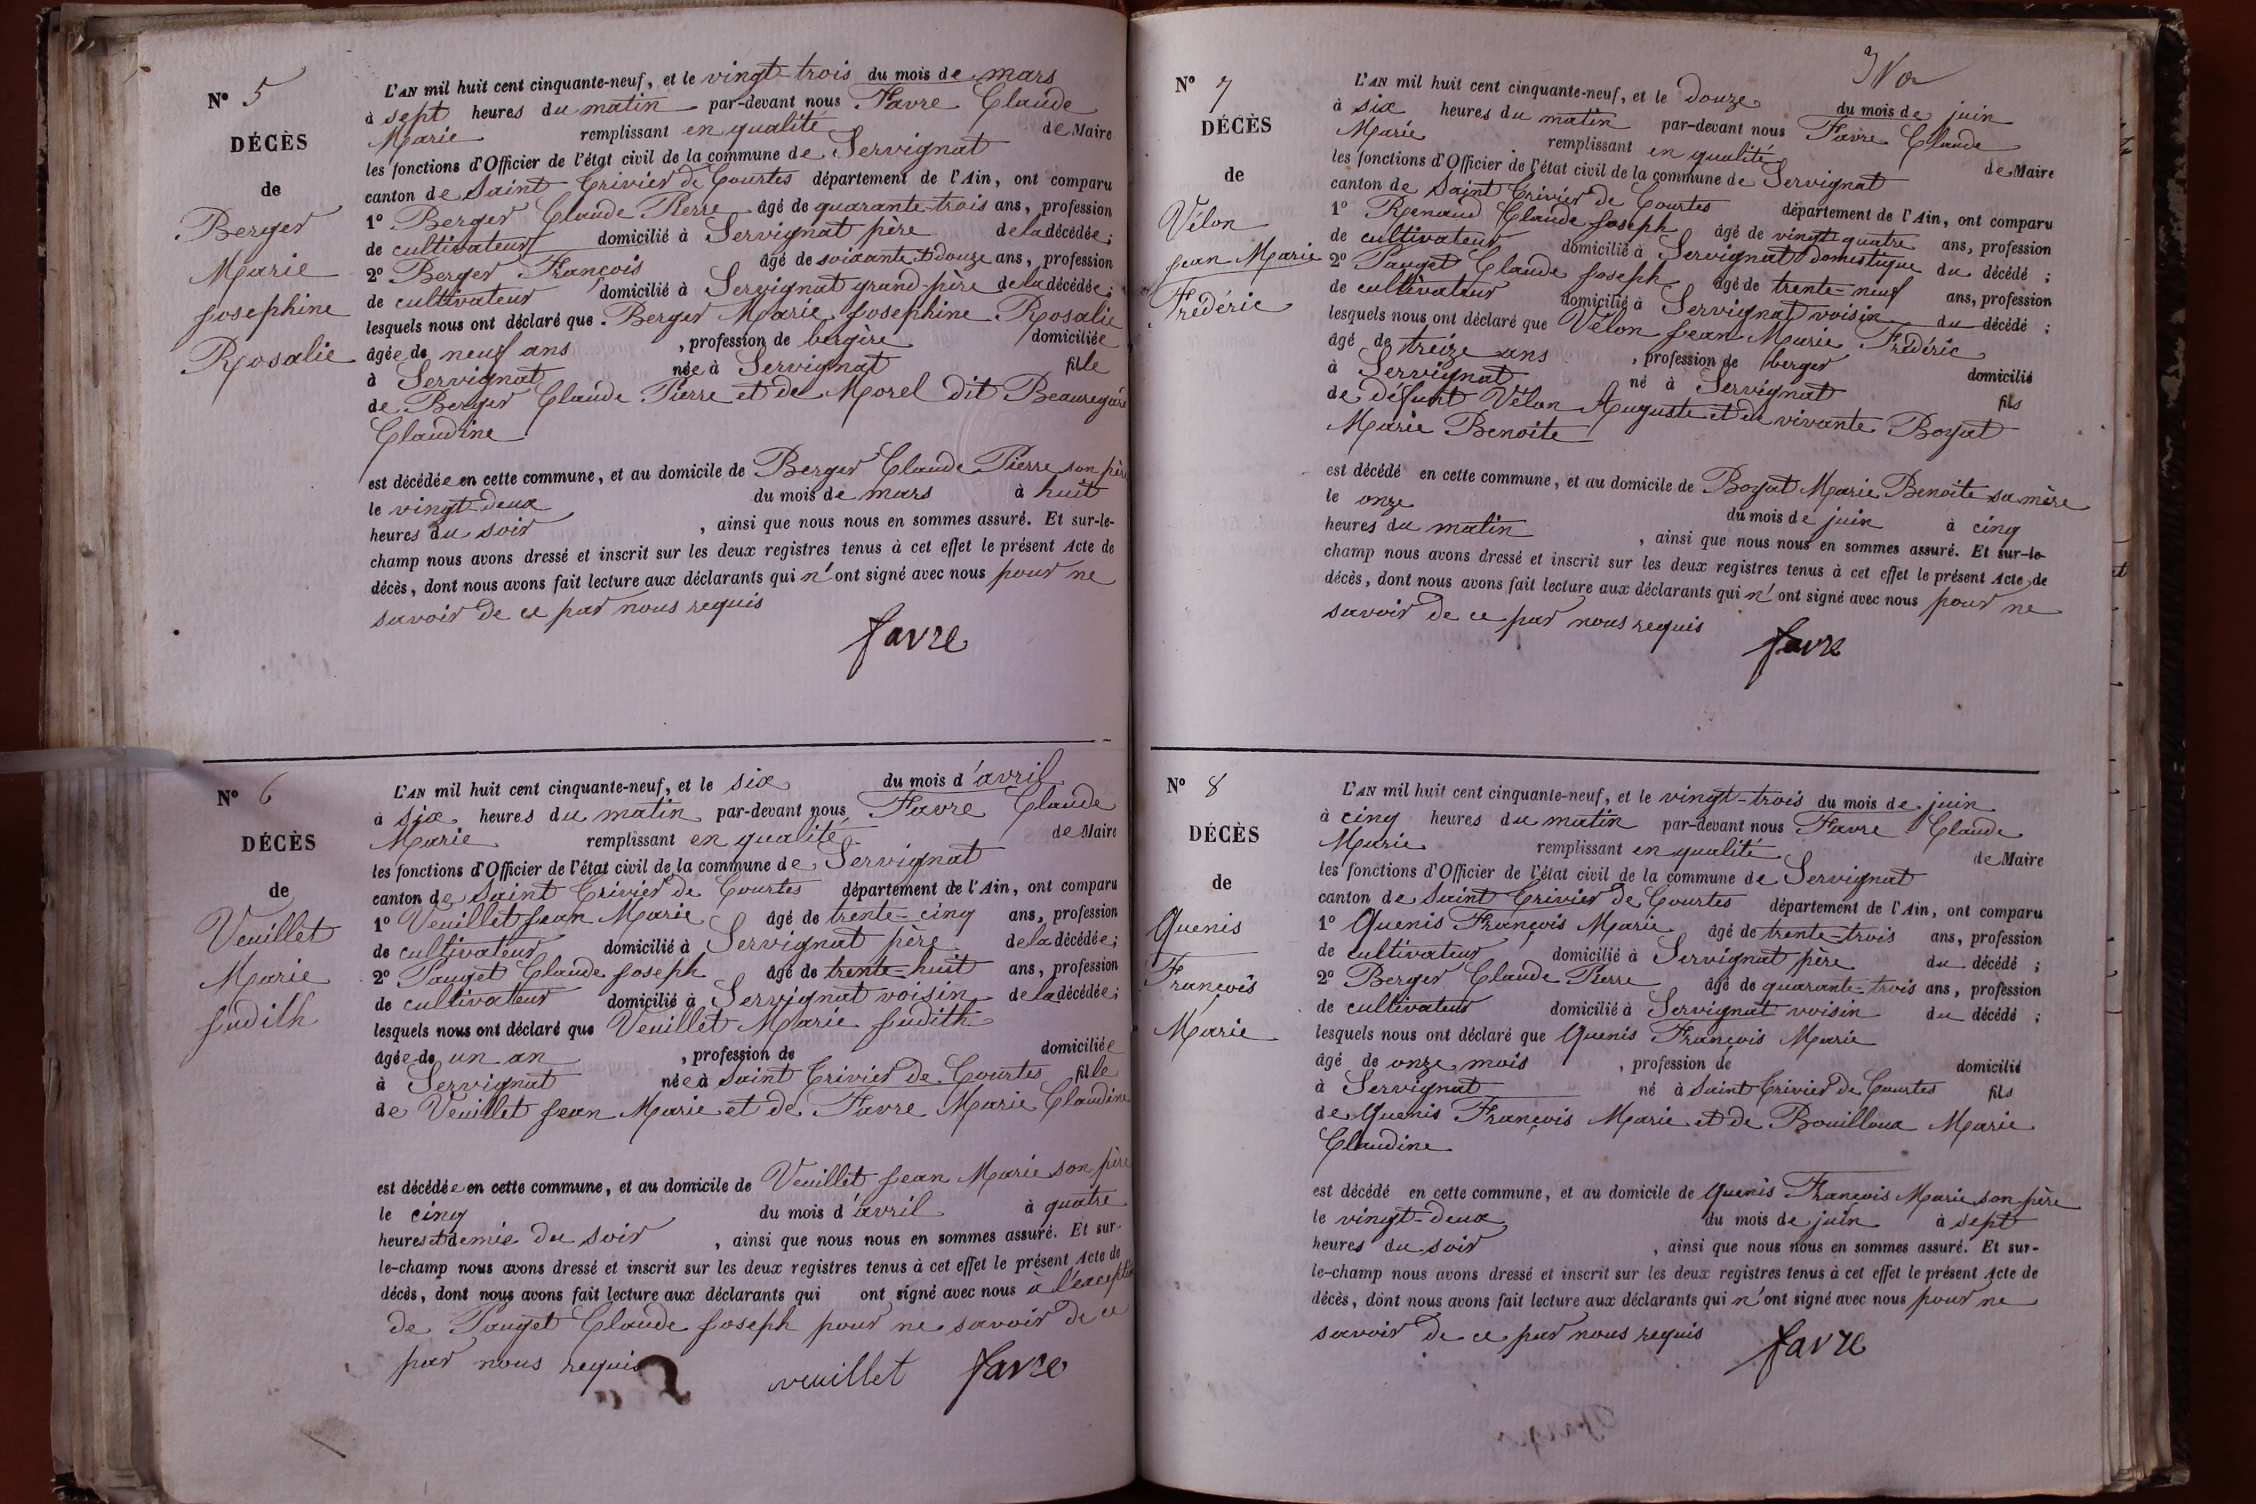 N° 5
DÉCÈS
de
Berger
Marie
Josephine
Rosalie
L'AN mil huit cent cinquante-neuf, et le vingt-trois du mois de mars
à sept heures du matin par-devant nous Favre Claude
Marie remplissant en qualité de Maire
les fonctions d'Officier de l'état civil de la commune de Servignat
canton de Saint Trivier de Courtes département de l'Ain, ont comparu
1° Berger Claude Pierre âgé de quarante-trois ans, profession
de cultivateur domicilié à Servignat père de la décédée;
2° Berger François âgé de soixante et douze ans, profession
de cultivateur domicilié à Servignat grand-père de la décédée;
lesquels nous ont déclaré que Berger Marie Josephine Rosalie
âgée de neuf ans, profession de bergère domiciliée
à Servignat née à Servignat fille
de Berger Claude Pierre et de Morel dit Beauregard
Claudine
est décédée en cette commune, et au domicile de Berger Claude Pierre son père
le vingt-deux du mois de mars à huit
heures du soir, ainsi que nous nous en sommes assuré. Et sur-le-
champ nous avons dressé et inscrit sur les deux registres tenus à cet effet le présent Acte de
décès, dont nous avons fait lecture aux déclarants qui n'ont signé avec nous pour ne
savoir de ce par nous requis
favre
N° 6
DÉCÈS
de
Veuillet
Marie
Judith
L'AN mil huit cent cinquante-neuf, et le six du mois d'avril
à six heures du matin par-devant nous Favre Claude
Marie remplissant en qualité de Maire
les fonctions d'Officier de l'état civil de la commune de Servignat
canton de Saint Trivier de Courtes département de l'Ain, ont comparu
1° Veuillet Jean Marie âgé de trente-cinq ans, profession
de cultivateur domicilié à Servignat père de la décédée;
2° Pauget Claude Joseph âgé de trente-huit ans, profession
de cultivateur domicilié à Servignat voisin de la décédée;
lesquels nous ont déclaré que Veuillet Marie Judith
âgée de un an, profession de domiciliée
à Servignat née à Saint Trivier de Courtes fille
de Veuillet Jean Marie et de Favre Marie Claudine
est décédée en cette commune, et au domicile de Veuillet Jean Marie son père
le cinq du mois d'avril à quatre
heures et demie du soir, ainsi que nous nous en sommes assuré. Et sur-
le-champ nous avons dressé et inscrit sur les deux registres tenus à cet effet le présent Acte de
décès, dont nous avons fait lecture aux déclarants qui ont signé avec nous à l'exception
de Pauget Claude Joseph pour ne savoir de ce
par nous requis
veuillet favre
N° 7
DÉCÈS
de
Vélon
Jean Marie
Frédéric
L'AN mil huit cent cinquante-neuf, et le douze du mois de juin
à six heures du matin par-devant nous Favre Claude
Marie remplissant en qualité de Maire
les fonctions d'Officier de l'état civil de la commune de Servignat
canton de Saint Trivier de Courtes département de l'Ain, ont comparu
1° Renaud Claude Joseph âgé de vingt-quatre ans, profession
de cultivateur domicilié à Servignat domestique du décédé;
2° Pauget Claude Joseph âgé de trente-neuf ans, profession
de cultivateur domicilié à Servignat voisin du décédé;
lesquels nous ont déclaré que Vélon Jean Marie Frédéric
âgé de treize ans, profession de berger domicilié
à Servignat né à Servignat fils
de défunt Vélon Auguste et de vivante Boyat
Marie Benoite
est décédé en cette commune, et au domicile de Boyat Marie Benoite sa mère
le onze du mois de juin à cinq
heures du matin, ainsi que nous nous en sommes assuré. Et sur-le-
champ nous avons dressé et inscrit sur les deux registres tenus à cet effet le présent Acte de
décès, dont nous avons fait lecture aux déclarants qui n'ont signé avec nous pour ne
savoir de ce par nous requis
favre
N° 8
DÉCÈS
de
Quenis
François
Marie
L'AN mil huit cent cinquante-neuf, et le vingt-trois du mois de juin
à cinq heures du matin par-devant nous Favre Claude
Marie remplissant en qualité de Maire
les fonctions d'Officier de l'état civil de la commune de Servignat
canton de Saint Trivier de Courtes département de l'Ain, ont comparu
1° Quenis François Marie âgé de trente-trois ans, profession
de cultivateur domicilié à Servignat père du décédé;
2° Berger Claude Pierre âgé de quarante-trois ans, profession
de cultivateur domicilié à Servignat voisin du décédé;
lesquels nous ont déclaré que Quenis François Marie
âgé de onze mois, profession de domicilié
à Servignat né à Saint Trivier de Courtes fils
de Quenis François Marie et de Bouilloux Marie
Claudine
est décédé en cette commune, et au domicile de Quenis François Marie son père
le vingt-deux du mois de juin à sept
heures du soir, ainsi que nous nous en sommes assuré. Et sur-
le-champ nous avons dressé et inscrit sur les deux registres tenus à cet effet le présent Acte de
décès, dont nous avons fait lecture aux déclarants qui n'ont signé avec nous pour ne
savoir de ce par nous requis
favre